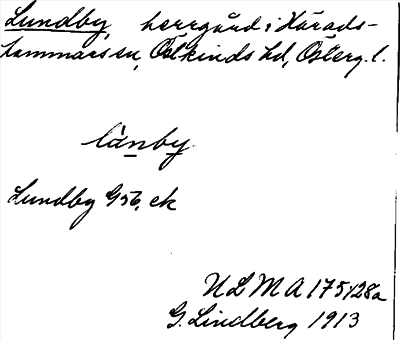 Lundby, herrgård i Härads-
hammars sn, Östkinds hd, Österg. l.
länby
Lundby G56, ek
ULMA 175:28a
G. Lindberg 1913